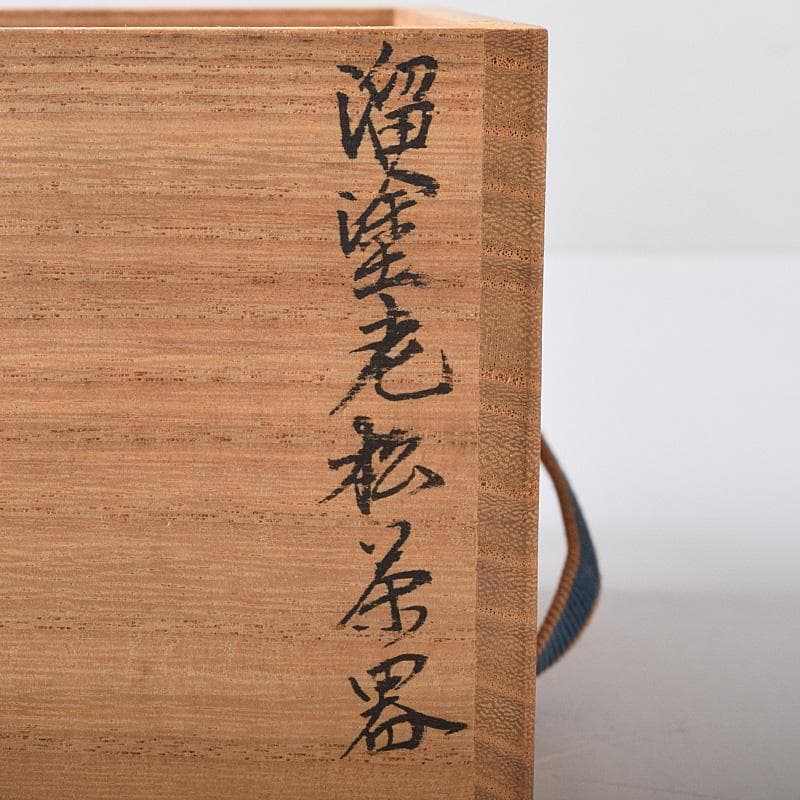 溜塗老松茶器